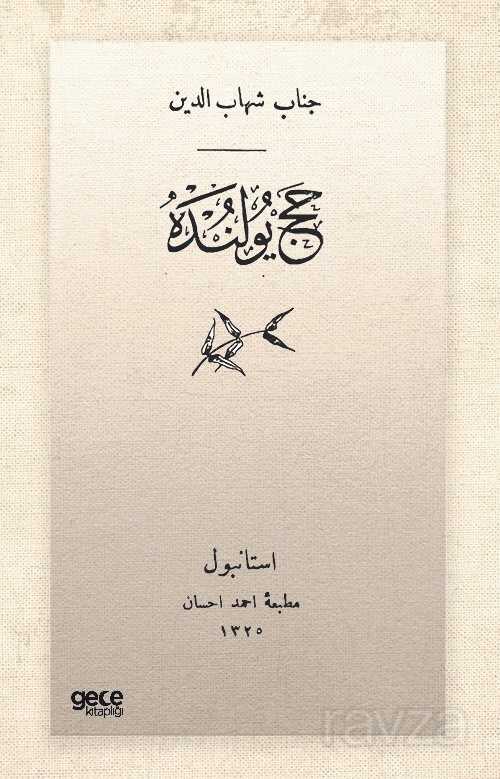 جناب شهاب الدين
حَجّ يُولُنْدَهْ
استانبول
مطبعهٔ احمد احسان
١٣٢٥
gece
kitaplığı
ravza